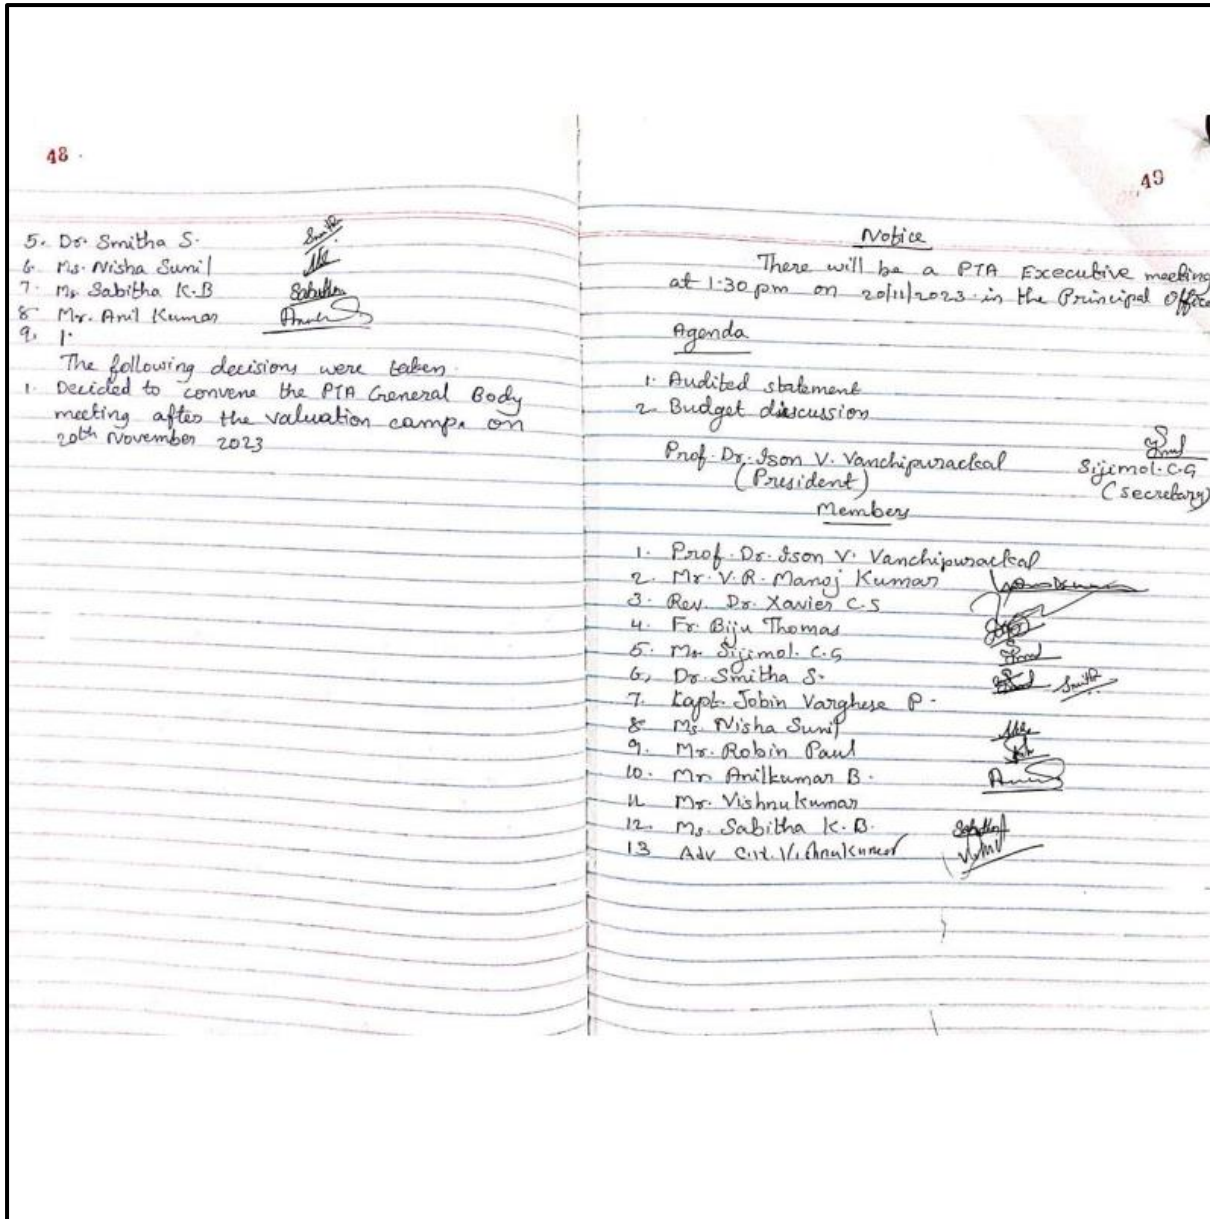 48
5. Dr. Smitha S.
6. Ms. Nisha Sunil
7. Ms Sabitha K.B
8 Mr. Anil Kumar
9. 1.
The following decisions were taken.
1. Decided to convene the PTA General Body
meeting after the valuation camp. on
20th November 2023
49
Notice
There will be a PTA Executive meeting
at 1.30 pm on 20/11/2023 in the Principal Office
Agenda
1. Audited statement
2. Budget discussion
Prof. Dr. Ison V. Vanchipurackal
(President)
Sijimol. C.G
(Secretary)
Members
1. Prof. Dr. Ison V. Vanchipurackal
2. Mr. V.R. Manoj Kumar
3. Rev. Dr. Xavier C.S
4. Fr. Biju Thomas
5. Ms. Sijimol. C.G
6, Dr. Smitha S. Smitha
7. Capt. Jobin Varghese P.
8. Ms. Nisha Sunil
9. Mr. Robin Paul
10. Mr. Anilkumar B.
11 Mr. Vishnukumar
12. Ms. Sabitha K.B.
13 Adv C.H. Vishnukumar